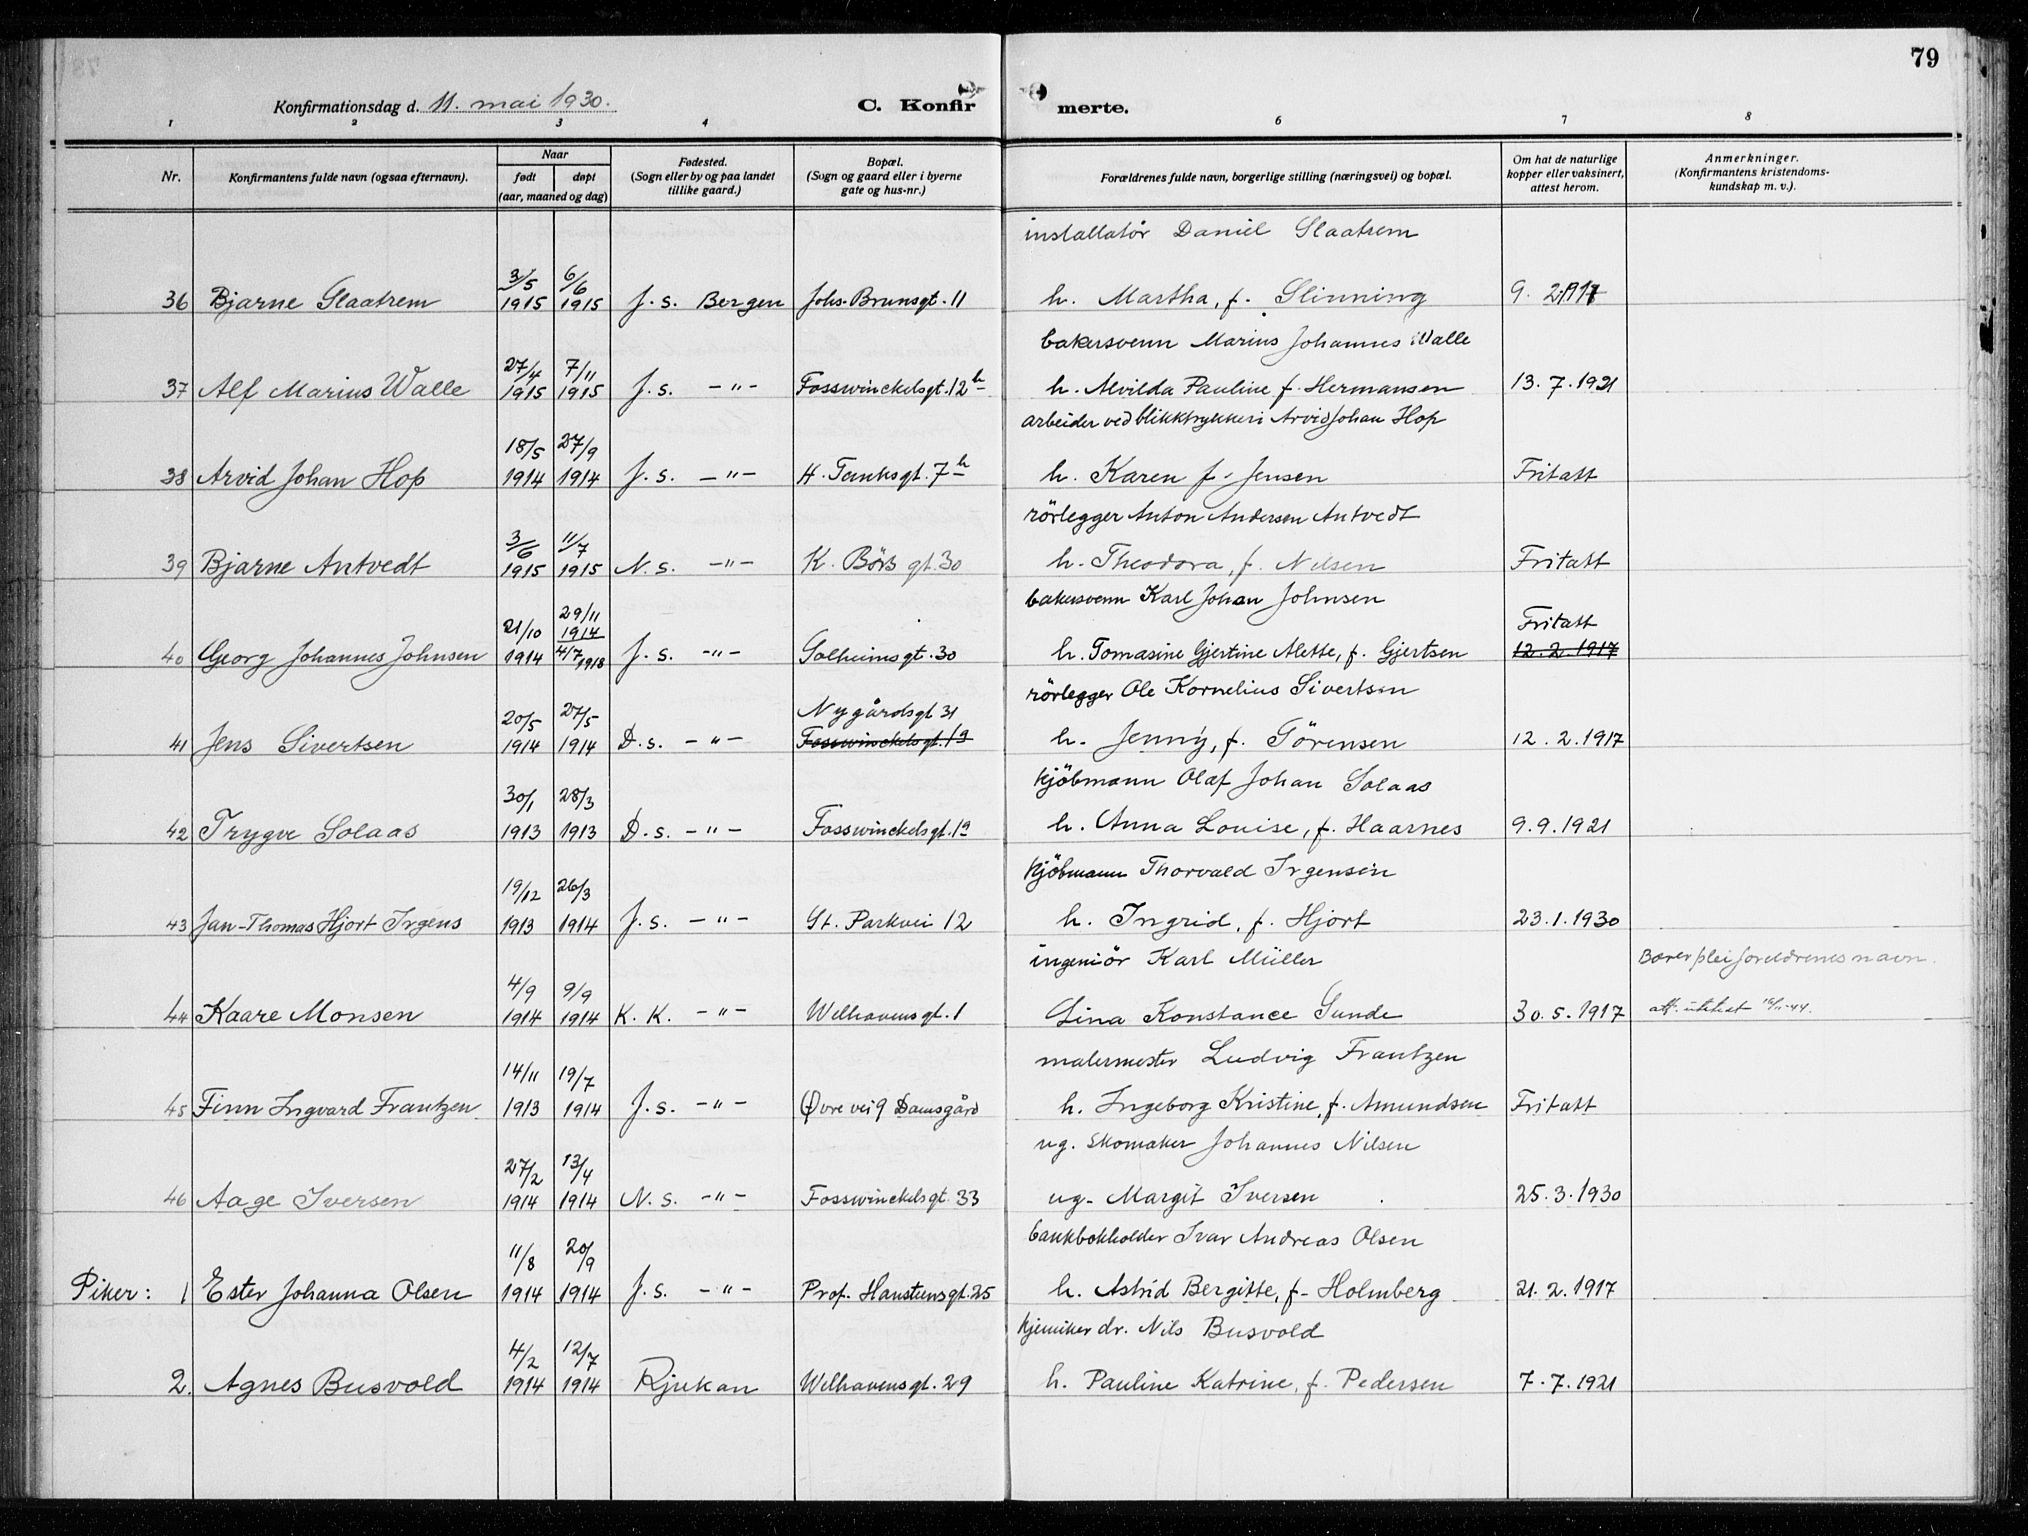 79
Konfirmationsdag d. 11. mai 1930.
C. Konfir merte.
1 2 3 4 6 7 8
Nr.
Konfirmantens fulde navn (ogsaa efternavn).
Naar
født døpt
(aar, maaned og dag)
Fødested.
(Sogn eller by og paa landet
tillike gaard.)
Bopæl.
(Sogn og gaard eller i byerne
gate og hus-nr.)
Forældrenes fulde navn, borgerlige stilling (næringsvei) og bopæl.
Om hat de naturlige
kopper eller vaksinert,
attest herom.
Anmerkninger.
(Konfirmantens kristendoms-
kundskap m. v.).
installatör Daniel Slaatrem
3/5 6/6
36 Bjarne Slaatrem 1915 1915 J. s. Bergen Johs. Brunsgt. 11 h. Martha, f. Slinning 9. 2. 1917
bakersvenn Marius Johannes Walle
27/4 7/11
37 Alf Marius Walle 1915 1915 J. s. -"- Fosswinckelsgt. 12 b h. Alvilda Pauline f. Hermansen 13. 7. 1921
arbeider ved blikktrykkeri Arvid Johan Hop
18/5 27/9
38 Arvid Johan Hop 1914 1914 J. s. -"- H. Tanksgt. 7 b h. Karen f. Jensen Fritatt
rörlegger Anton Andersen Antvedt
3/6 11/7
39 Bjarne Antvedt 1915 1915 N. s. -"- K. Börs gt. 30 h. Theodora, f. Nilsen Fritatt
bakersvenn Karl Johan Johnsen
21/10 29/11 1914 Fritatt
40 Georg Johannes Johnsen 1914 4/7 1918 J. s. -"- Solheimsgt. 30 h. Tomasine Gjertine Mette, f. Gjertsen 12. 2. 1917
rörlegger Ole Kornelius Sivertsen
20/5 27/5 Nygårdsgt 31
41 Jens Sivertsen 1914 1914 D. s. -"- Fosswinckelsgt. 19 h. Jenny, f. Sörensen 12. 2. 1917
kjöbmann Olaf Johan Solaas
30/1 28/3
42 Trygve Solaas 1913 1913 D. s. -"- Fosswinckelsgt. 19 h. Anna Louise, f. Haarnes 9. 9. 1921
kjöbmann Thorvald Irgensen
19/12 26/3
43 Jan-Thomas Hjort Irgens 1913 1914 J. s. -"- St. Parkvei 12 h. Ingrid, f. Hjort 23. 1. 1930
ingeniör Karl Müller Bærer pleiforeldrenes navn.
4/9 9/9
44 Kaare Monsen 1914 1914 K. K. -"- Welhavensgt. 1 Lina Konstance Sunde 30. 5. 1917 att. utstedt 16/11-44.
malermester Ludvig Frantzen
14/11 19/7
45 Finn Ingvard Frantzen 1913 1914 J. s. -"- Øvre vei 9 Damsgård h. Ingeborg Kristine, f. Amundsen Fritatt
ug. skomaker Johannes Nilsen
27/2 13/4
46 Aage Iversen 1914 1914 N. s. -"- Fosswinckelsgt. 33 ug. Margit Iversen 25. 3. 1930
bankbokholder Ivar Andreas Olsen
11/8 20/9
Piker: 1 Ester Johanna Olsen 1914 1914 J. s. -"- Prof. Hansteensgt. 25 h. Astrid Bergitte, f. Holmberg 21. 2. 1917
kjemiker dr. Nils Busvold
4/2 12/7
2. Agnes Busvold 1914 1914 Rjukan Welhavensgt. 29 h. Pauline Katrine, f. Pedersen 7. 7. 1921